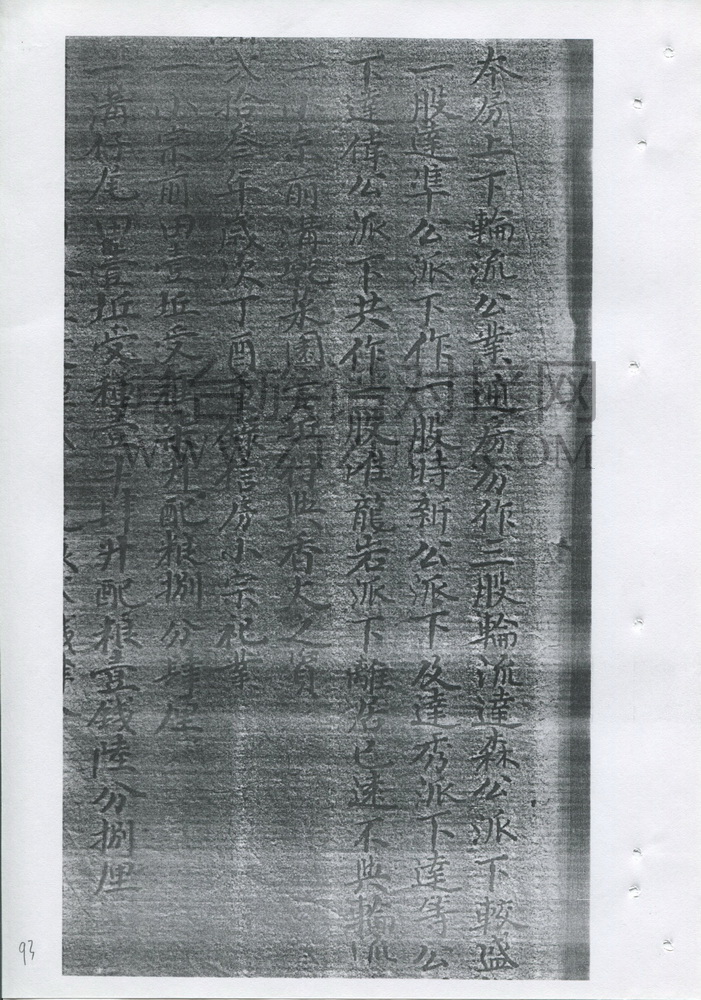 本房上下輪流公業通房分作三股輪流達森公派下較盛
一股達準公派下作一股時新公派下及達秀派下達等公
下達偉公派下共作一股惟龍岩派下離居已速不與輪流
一小宗前溝墘菜園壹坵付與香火之資
弍拾叁年歲次丁酉 錄 房小宗祀業
一小宗前田壹坵受種柒升配粮捌分肆厘
一溝仔尾田壹坵受種壹斗肆升配粮壹錢陸分捌厘
93